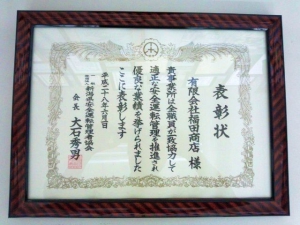 表彰状
有限会社福田商店 様
貴事業所は全職員が一致協力して
適正な安全運転管理を推進され
優良な業績を挙げられました
ここに表彰します
平成二十八年六月
新潟県安全運転管理者協会
会長 大石秀男